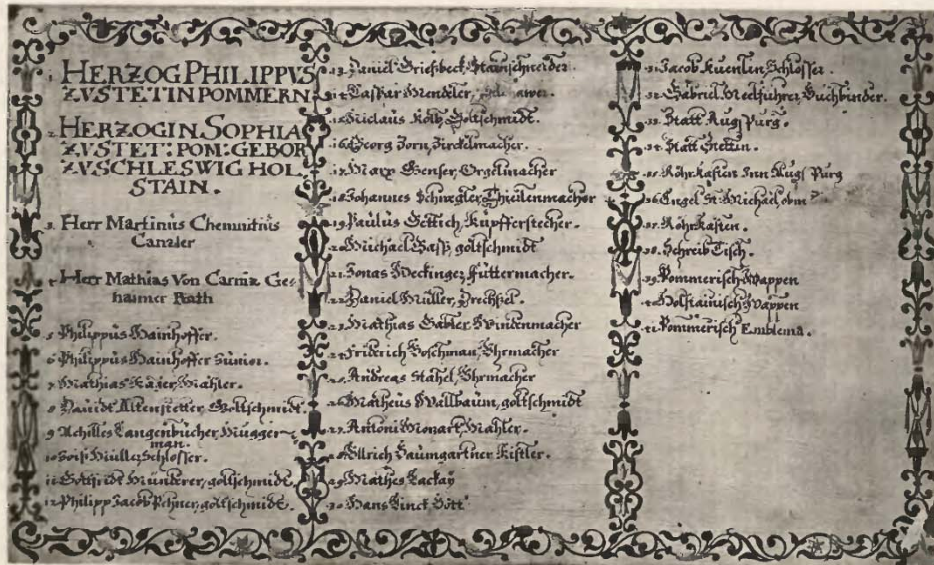 1 HERZOG PHILIPPVS
ZVSTETIN POMMERN.
2 HERZOGIN SOPHIA
ZVSTET: POM: GEBOR
ZVSCHLESWIG HOL
STAIN.
3 Herr Martinus Chemnitius
Canzler
4 Herr Mathias Von Carniz Ge-
haimer Rath
5 Philippüs Hainhoffer.
6 Philippüs Hainhoffer Junior.
7 Mathias Kager, Mahler.
8 Dauidt Altenstetter, Goltschmidt.
9 Achilles Langenbücher,
man.
10 Müller, Schlosser.
11 Gottfridt Münderer, goltschmidt.
12 Philipp Jacob, goltschmidt.
13 Daniel Griesbeck, Stainschneider.
14 Caspar Mendeler,
15 Niclaüs Kolb, Goltschmidt.
16 Georg Zorn, Zirckelmacher.
17 Marx Genser, Orgelmacher
18 Johannes Schwegler,
19 Paulus Göttich, Kupfferstecher.
20 Michael Gass, goltschmidt
21 Jonas Meckinger, Füttermacher.
22 Daniel Müller,
23 Mathias Gabler, Windenmacher
24 Friderich Boschman, Vhrmacher
25 Andreas Stahel, Vhrmacher
26 Matheus Wallbaum, goltschmidt
27 Antoni Mozart, Mahler.
28 Vllrich Baumgartner Kistler.
29 Mathes Lackay
30 Hans
31 Jacob Kuenlin, Schlosser.
32 Gabriel Meelfuhrer, Buchbinder.
33 Statt Augspurg.
34 Statt Stettin.
35 RöhrKasten Inn Augspurg
36 Engel St: Michael,
37 RöhrKasten.
38 SchreibTisch.
39 Pommerisch Wappen
40 Holstainisch Wappen
41 Pommerisch Emblema.